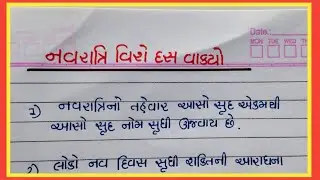 Date:
MON TUE WED THU
નવરાત્રિ વિશે દસ વાક્યો
૧) નવરાત્રિનો તહેવાર આસો સૂદ એકમથી
આસો સૂદ નોમ સુધી ઊજવાય છે.
૨) લોકો નવ દિવસ સુધી શક્તિની આરાધના